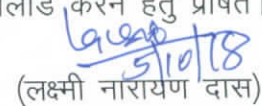 लोड करने हेतु प्रेषित।
5/10/18
(लक्ष्मी नारायण दास)